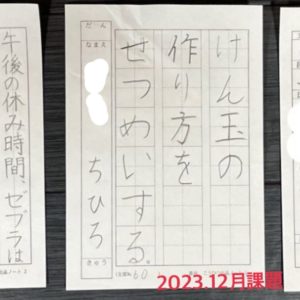 けん玉の
作り方を
せつめいする。
だん
なまえ
ちひろ
きゅう
60
午後の休み時間、ゼブラは
2023.12月課題